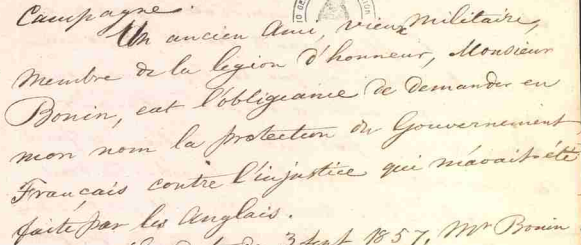 Campagne.
Un ancien ami, vieux militaire,
membre de la legion d'honneur, Monsieur
Bonin, eut l'obligeance de demander en
mon nom la protection du Gouvernement
Français contre l'injustice qui m'avait été
faite par les Anglais.
3 Sept 1857, Mr Bonin